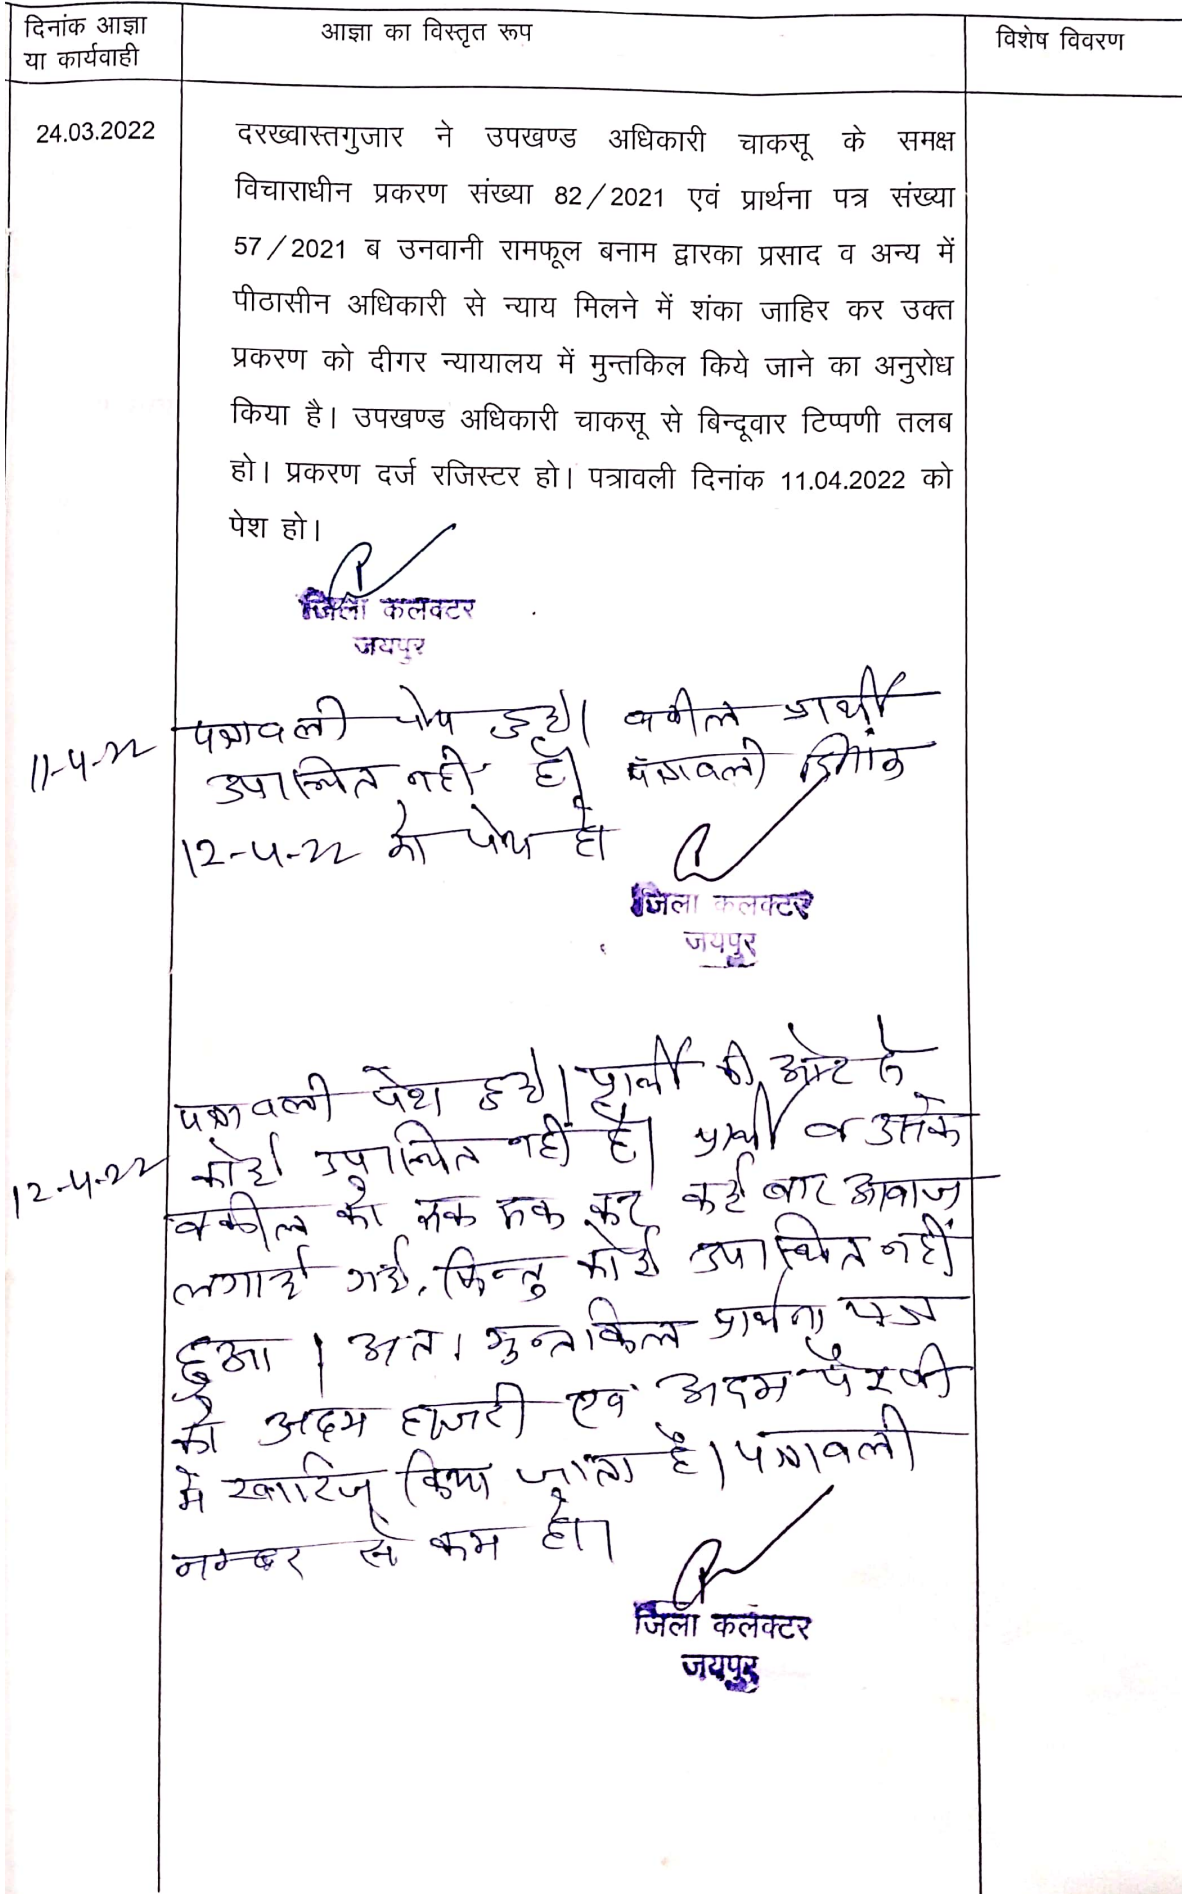 दिनांक आज्ञा
या कार्यवाही
आज्ञा का विस्तृत रूप
विशेष विवरण
24.03.2022
दरख्वास्तगुजार ने उपखण्ड अधिकारी चाकसू के समक्ष
विचाराधीन प्रकरण संख्या 82/2021 एवं प्रार्थना पत्र संख्या
57/2021 ब उनवानी रामफूल बनाम द्वारका प्रसाद व अन्य में
पीठासीन अधिकारी से न्याय मिलने में शंका जाहिर कर उक्त
प्रकरण को दीगर न्यायालय में मुन्तकिल किये जाने का अनुरोध
किया है। उपखण्ड अधिकारी चाकसू से बिन्दूवार टिप्पणी तलब
हो। प्रकरण दर्ज रजिस्टर हो। पत्रावली दिनांक 11.04.2022 को
पेश हो।
जिला कलक्टर
जयपुर
11-4-22
पत्रावली पेश हुई। वकील प्रार्थी
उपस्थित नही है। पत्रावली दिनांक
12-4-22 को पेश हो
जिला कलक्टर
जयपुर
12-4-22
पत्रावली पेश हुई। प्रार्थी की ओर से
कोई उपस्थित नही है। प्रार्थी व उसके
वकील को रूक रूक कर कई बार आवाज
लगाई गई, किन्तु कोई उपस्थित नहीं
हुआ। अतः मुन्तकिल प्रार्थना पत्र
को अदम हाजरी एवं अदम पैरवी
मे खारिज किया जाता है। पत्रावली
नम्बर से कम हो।
जिला कलक्टर
जयपुर